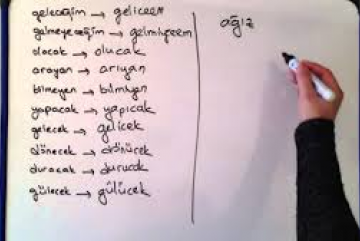 geleceğim → geliceem
gelmeyeceğim → gelmiyceem
olacak → olucak
arayan → arıyan
bilmeyen → bilmiyan
yapacak → yapıcak
gelecek → gelicek
dönecek → dönücek
duracak → durucak
gülecek → gülücek
ağız